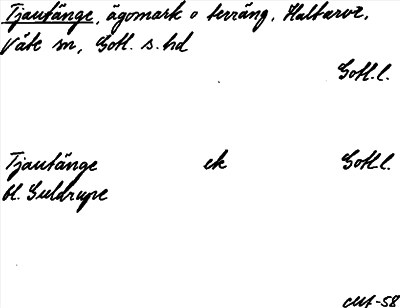 Tjautänge, ägomark o terräng, Hallarve,
Väte sn, Gotl. s. hd
Gotl.l.
Tjautänge ek Gotl.l.
bl. Guldrupe
-58